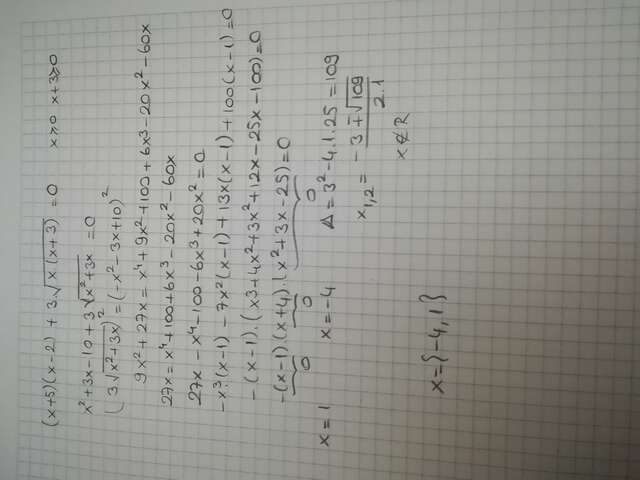 (x+5)(x-2) + 3√x.(x+3) = 0   x⩾0   x+3⩾0
x²+3x-10+3√x²+3x = 0
(3√x²+3x)² = (-x²-3x+10)²
9x²+27x = x⁴+9x²+100+6x³-20x²-60x
27x = x⁴+100+6x³-20x²-60x
27x-x⁴-100-6x³+20x² = 0
-x³(x-1)-7x²(x-1)+13x(x-1)+100(x-1)=0
-(x-1).(x³+4x²+3x²+12x-25x-100)=0
-(x-1).(x+4).(x²+3x-25)=0
0   0   0
x=1   x=-4   Δ=3²-4.1.25=109
x₁,₂ = -3∓√109
2.1
x∉R
x={-4,1}